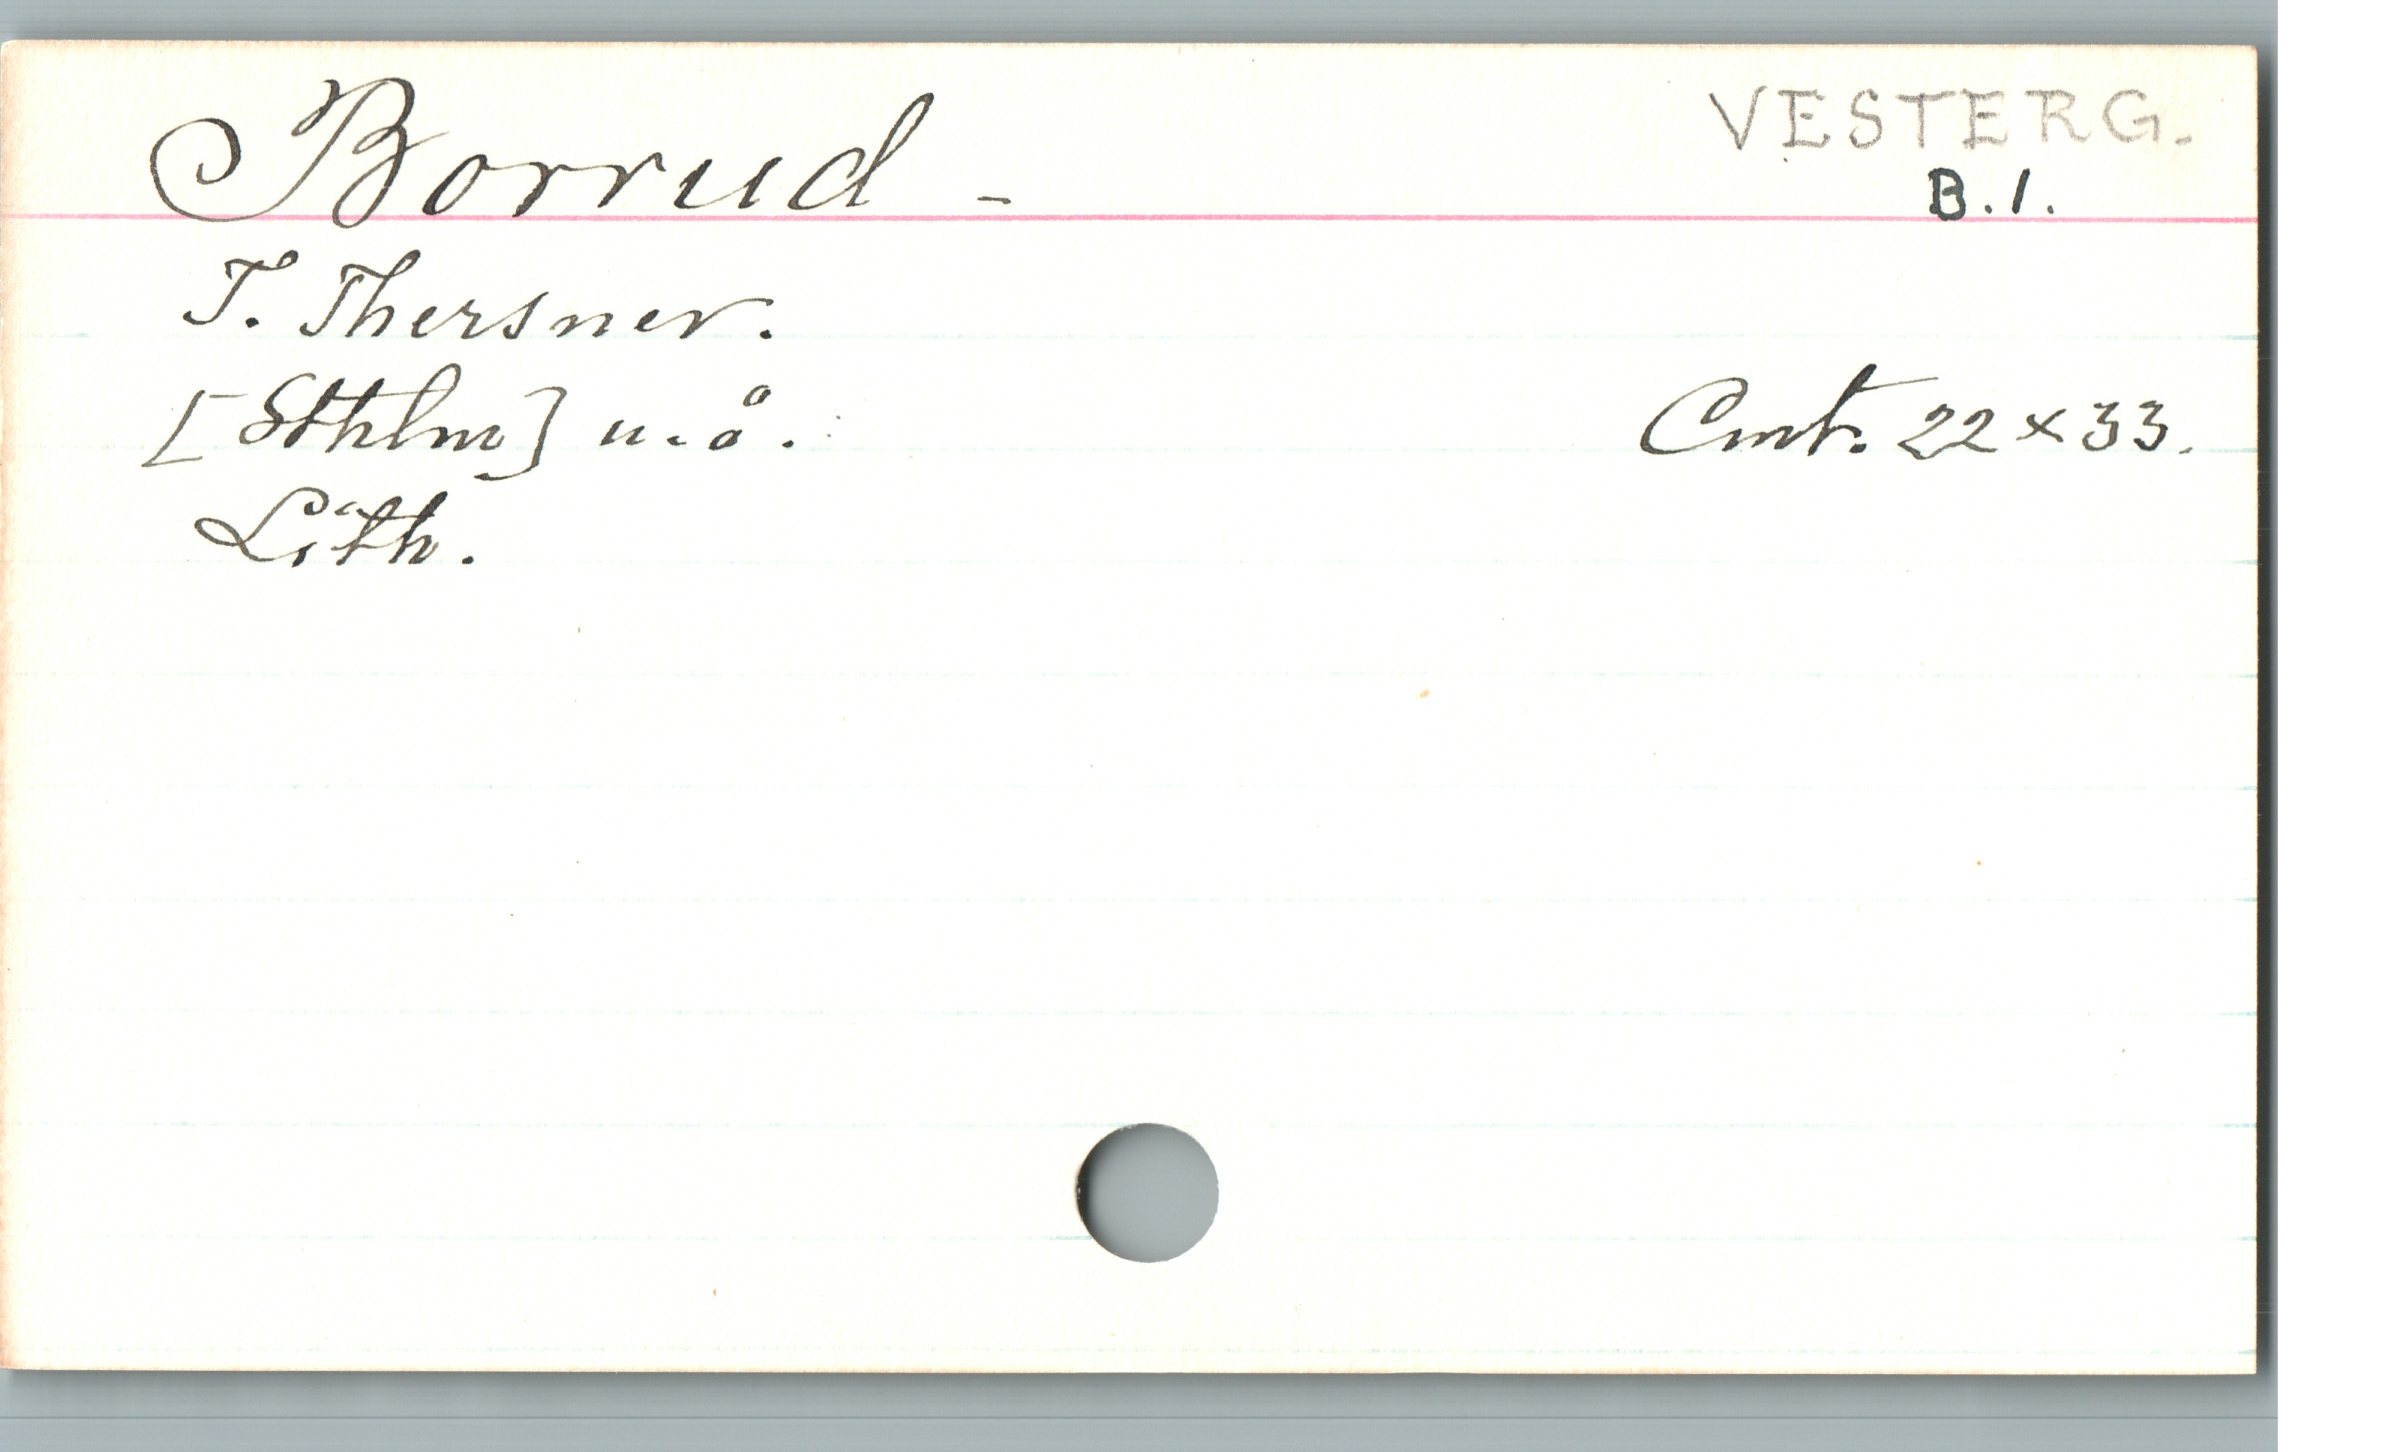 Borrud - VESTERG.
B.1.
T. Thersner.
[Sthlm] u. å. Cmt. 22 × 33.
Lith.